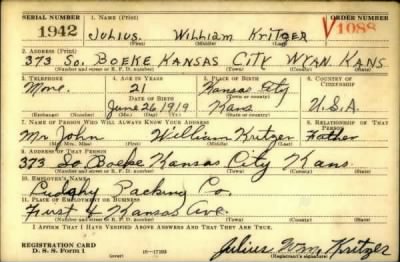 SERIAL NUMBER 1. NAME (Print) ORDER NUMBER
1942 JULIUS. William Kritzer V1088
(First) (Middle) (Last)
2. ADDRESS (Print)
373 So. BOEKE KANSAS CITY WYAN. KANS
(Number and street or R. F. D. number) (Town) (County) (State)
3. TELEPHONE 4. AGE IN YEARS 5. PLACE OF BIRTH 6. COUNTRY OF CITIZENSHIP
None. 21 Kansas City
DATE OF BIRTH (Town or county)
June 26 1919 Kans U.S.A.
(Exchange) (Number) (Mo.) (Day) (Yr.) (State or country)
7. NAME OF PERSON WHO WILL ALWAYS KNOW YOUR ADDRESS 8. RELATIONSHIP OF THAT PERSON
Mr John William Kritzer Father
(Mr., Mrs., Miss) (First) (Middle) (Last)
9. ADDRESS OF THAT PERSON
373 So Boeke Kansas City Kans.
(Number and street or R. F. D. number) (Town) (County) (State)
10. EMPLOYER'S NAME
Cudahy Packing Co.
11. PLACE OF EMPLOYMENT OR BUSINESS
First & Kansas Ave.
(Number and street or R. F. D. number) (Town) (County) (State)
I AFFIRM THAT I HAVE VERIFIED ABOVE ANSWERS AND THAT THEY ARE TRUE.
REGISTRATION CARD
D. S. S. Form 1 Julius Wm Kritzer
(Registrant's signature)